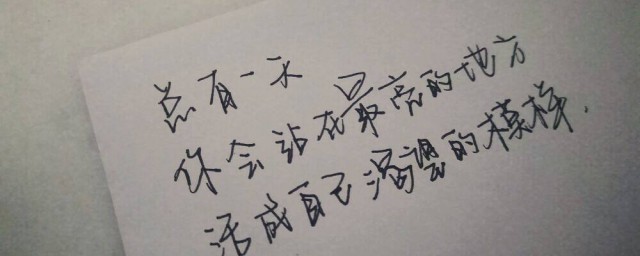 总有一天
你会站在最亮的地方
活成自己渴望的模样.